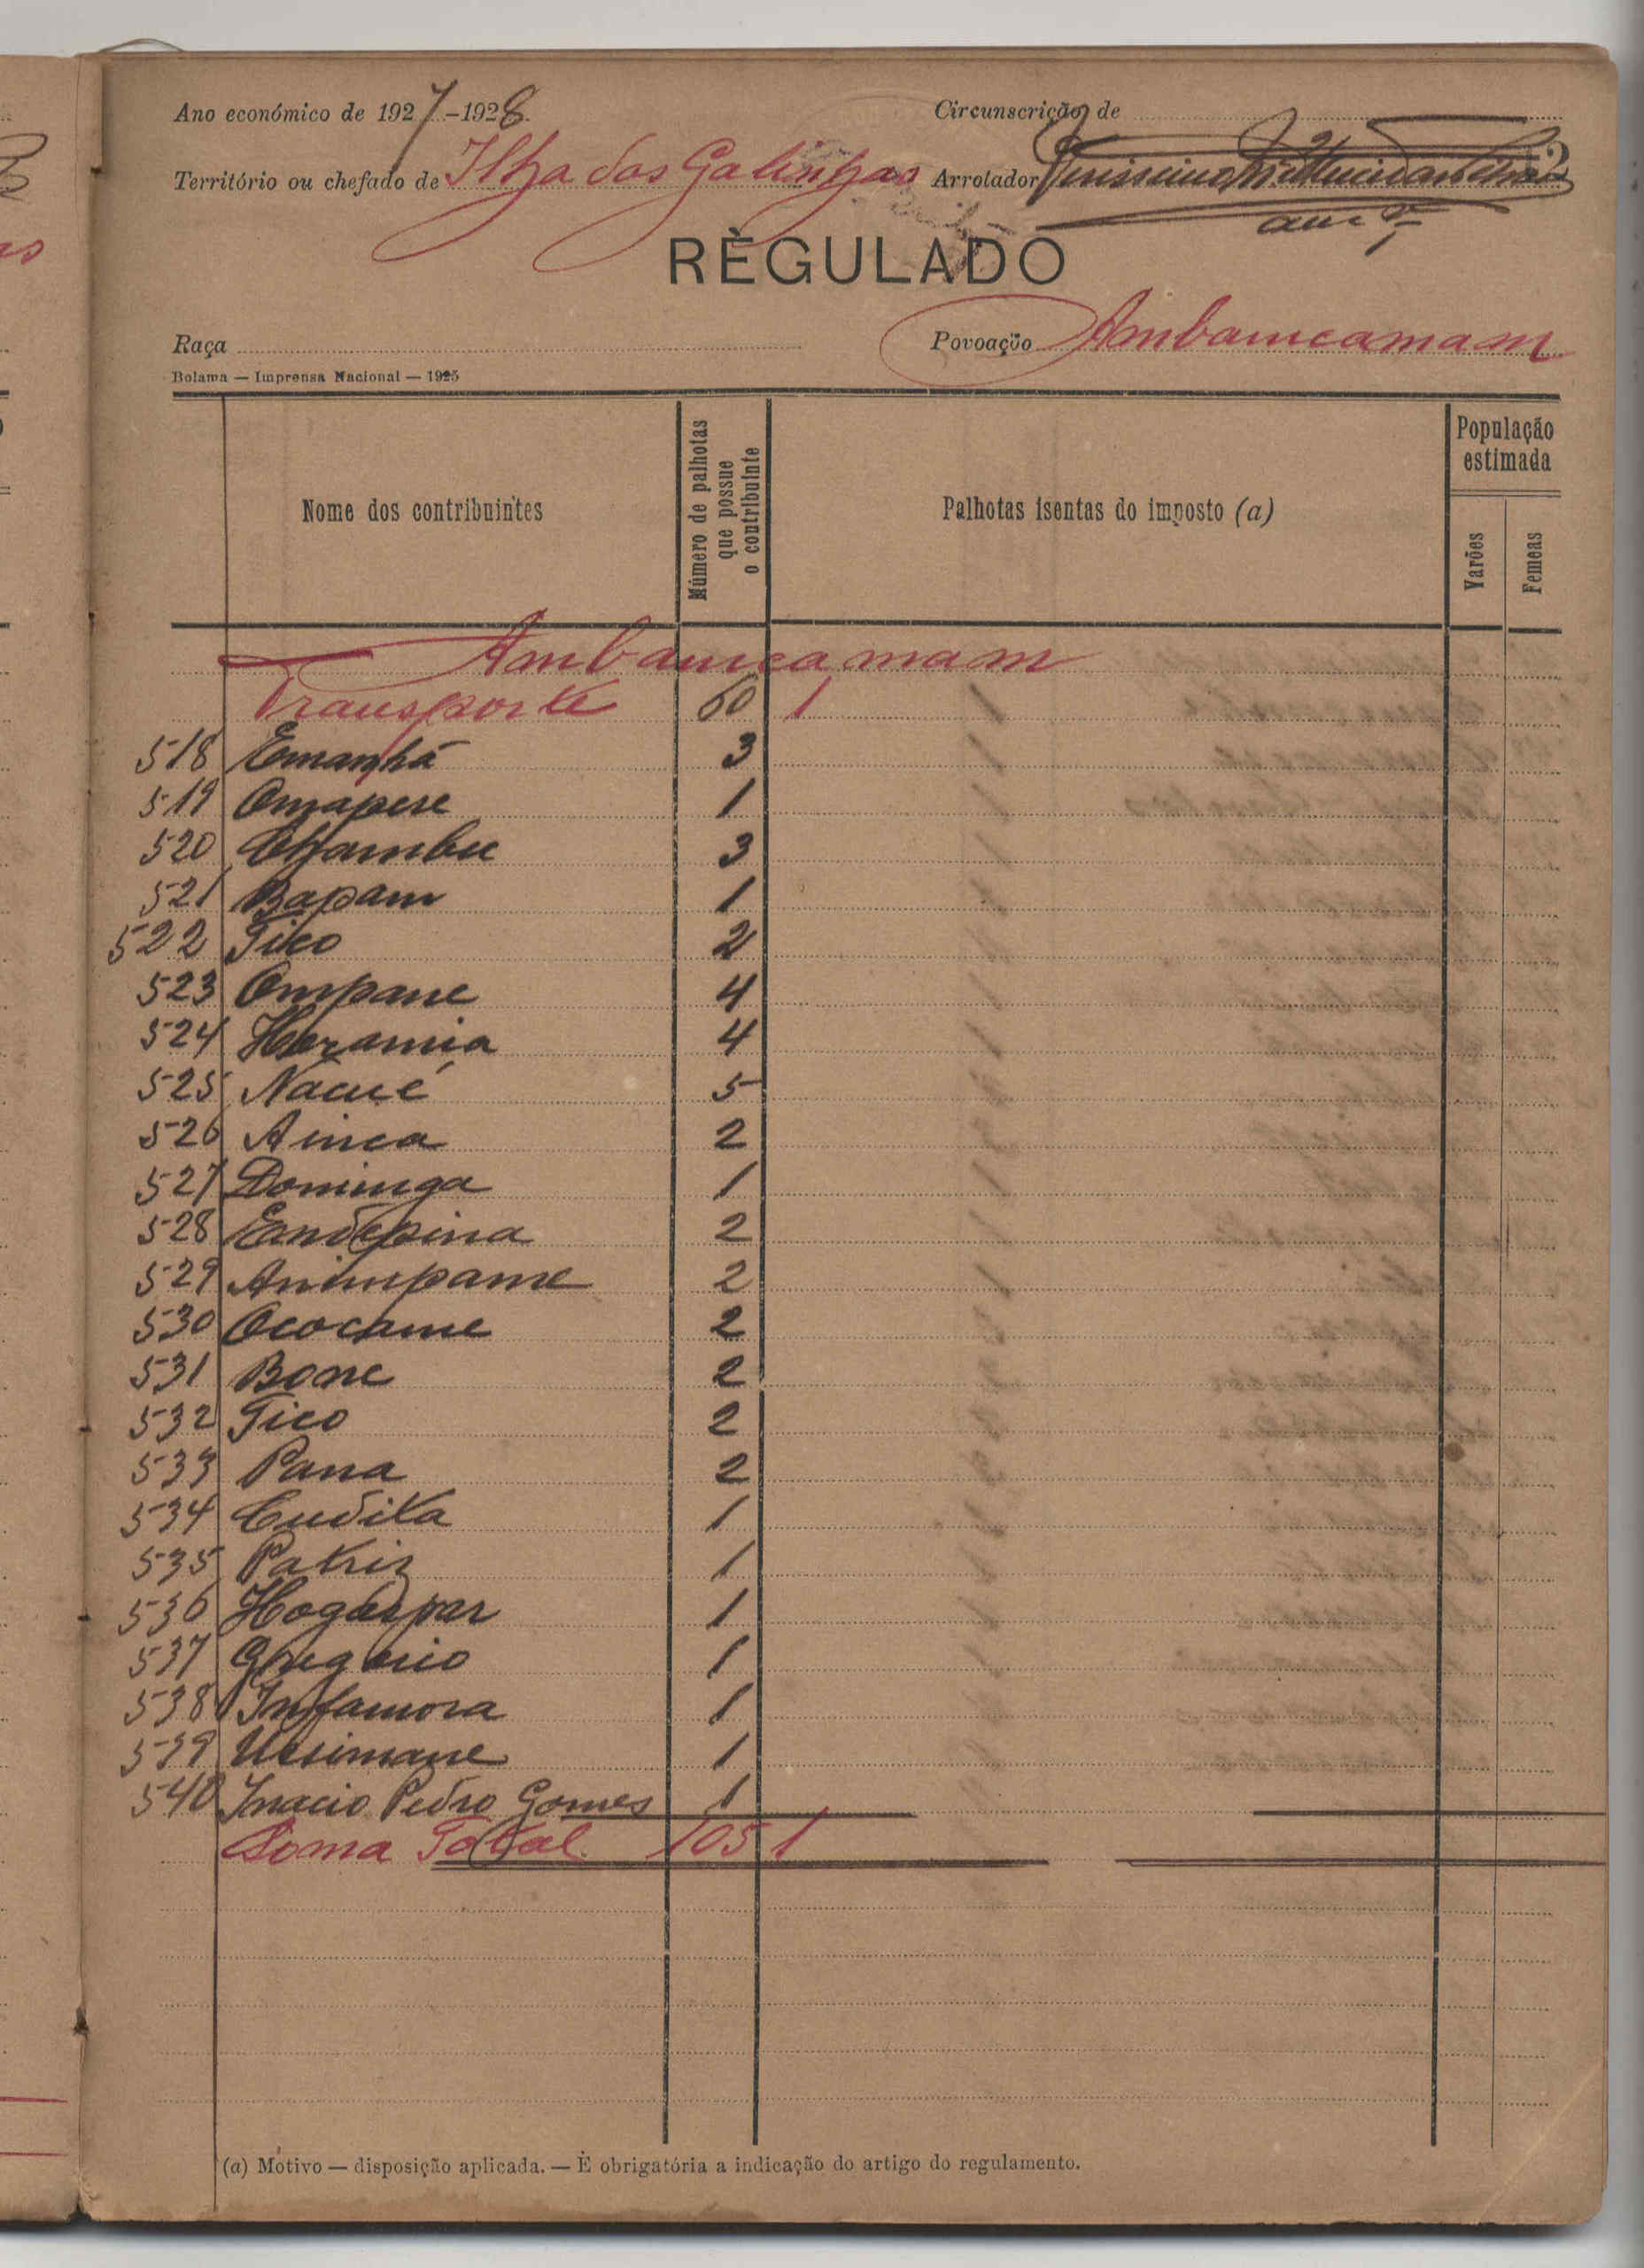 Ano económico de 1927-1928.
Circunscrição de
Território ou chefado de Ilha das Galinhas Arrolador
REGULADO
Raça
Povoação Ambancamam
Bolama — Imprensa Nacional — 1925
Nome dos contribuintes
Número de palhotas que possue o contribuinte
Palhotas isentas do imposto (a)
População estimada
Varões
Femeas
Ambancamam
Transporte 60 1
518 Emanhá 3
519 Onzapese 1
520 Chambu 3
521 Bapam 1
522 Tico 2
523 Ompane 4
524 4
525 Nacué 5
526 Ainca 2
527 Dominga 1
528 Eandepina 2
529 Animpame 2
530 Ococame 2
531 Bone 2
532 Tico 2
533 Pana 2
534 Cudita 1
535 Patriz 1
536 Hogaspar 1
537 Gregorio 1
538 Infamora 1
539 1
540 Inacio Pedro Gomes 1
Soma Total 105 1
(a) Motivo — disposição aplicada. — É obrigatória a indicação do artigo do regulamento.